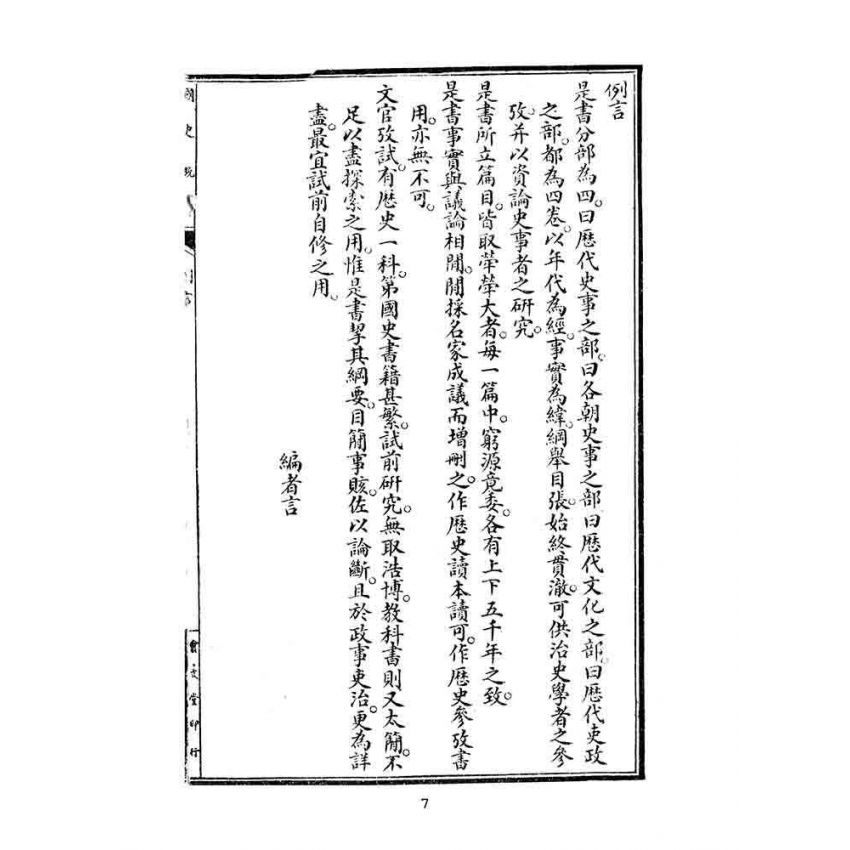 例言
是書分部為四。曰歷代史事之部。曰各朝史事之部曰歷代文化之部。曰歷代吏政
之部。都為四卷。以年代為經。事實為緯。綱舉目張。始終貫澈。可供治史學者之參
攷。并以資論史事者之研究。
是書所立篇目。皆取犖犖大者。每一篇中。窮源竟委。各有上下五千年之致。
是書事實與議論相間。間採名家成議而增刪之。作歷史讀本讀可。作歷史參攷書
用。亦無不可。
文官攷試。有歷史一科。第國史書籍甚繁。試前研究。無取浩博。教科書則又太簡。不
足以盡探索之用。惟是書挈其綱要。目簡事賅。佐以論斷。且於政事吏治。更為詳
盡。最宜試前自修之用。
編者言
史
言
會文堂印行
7